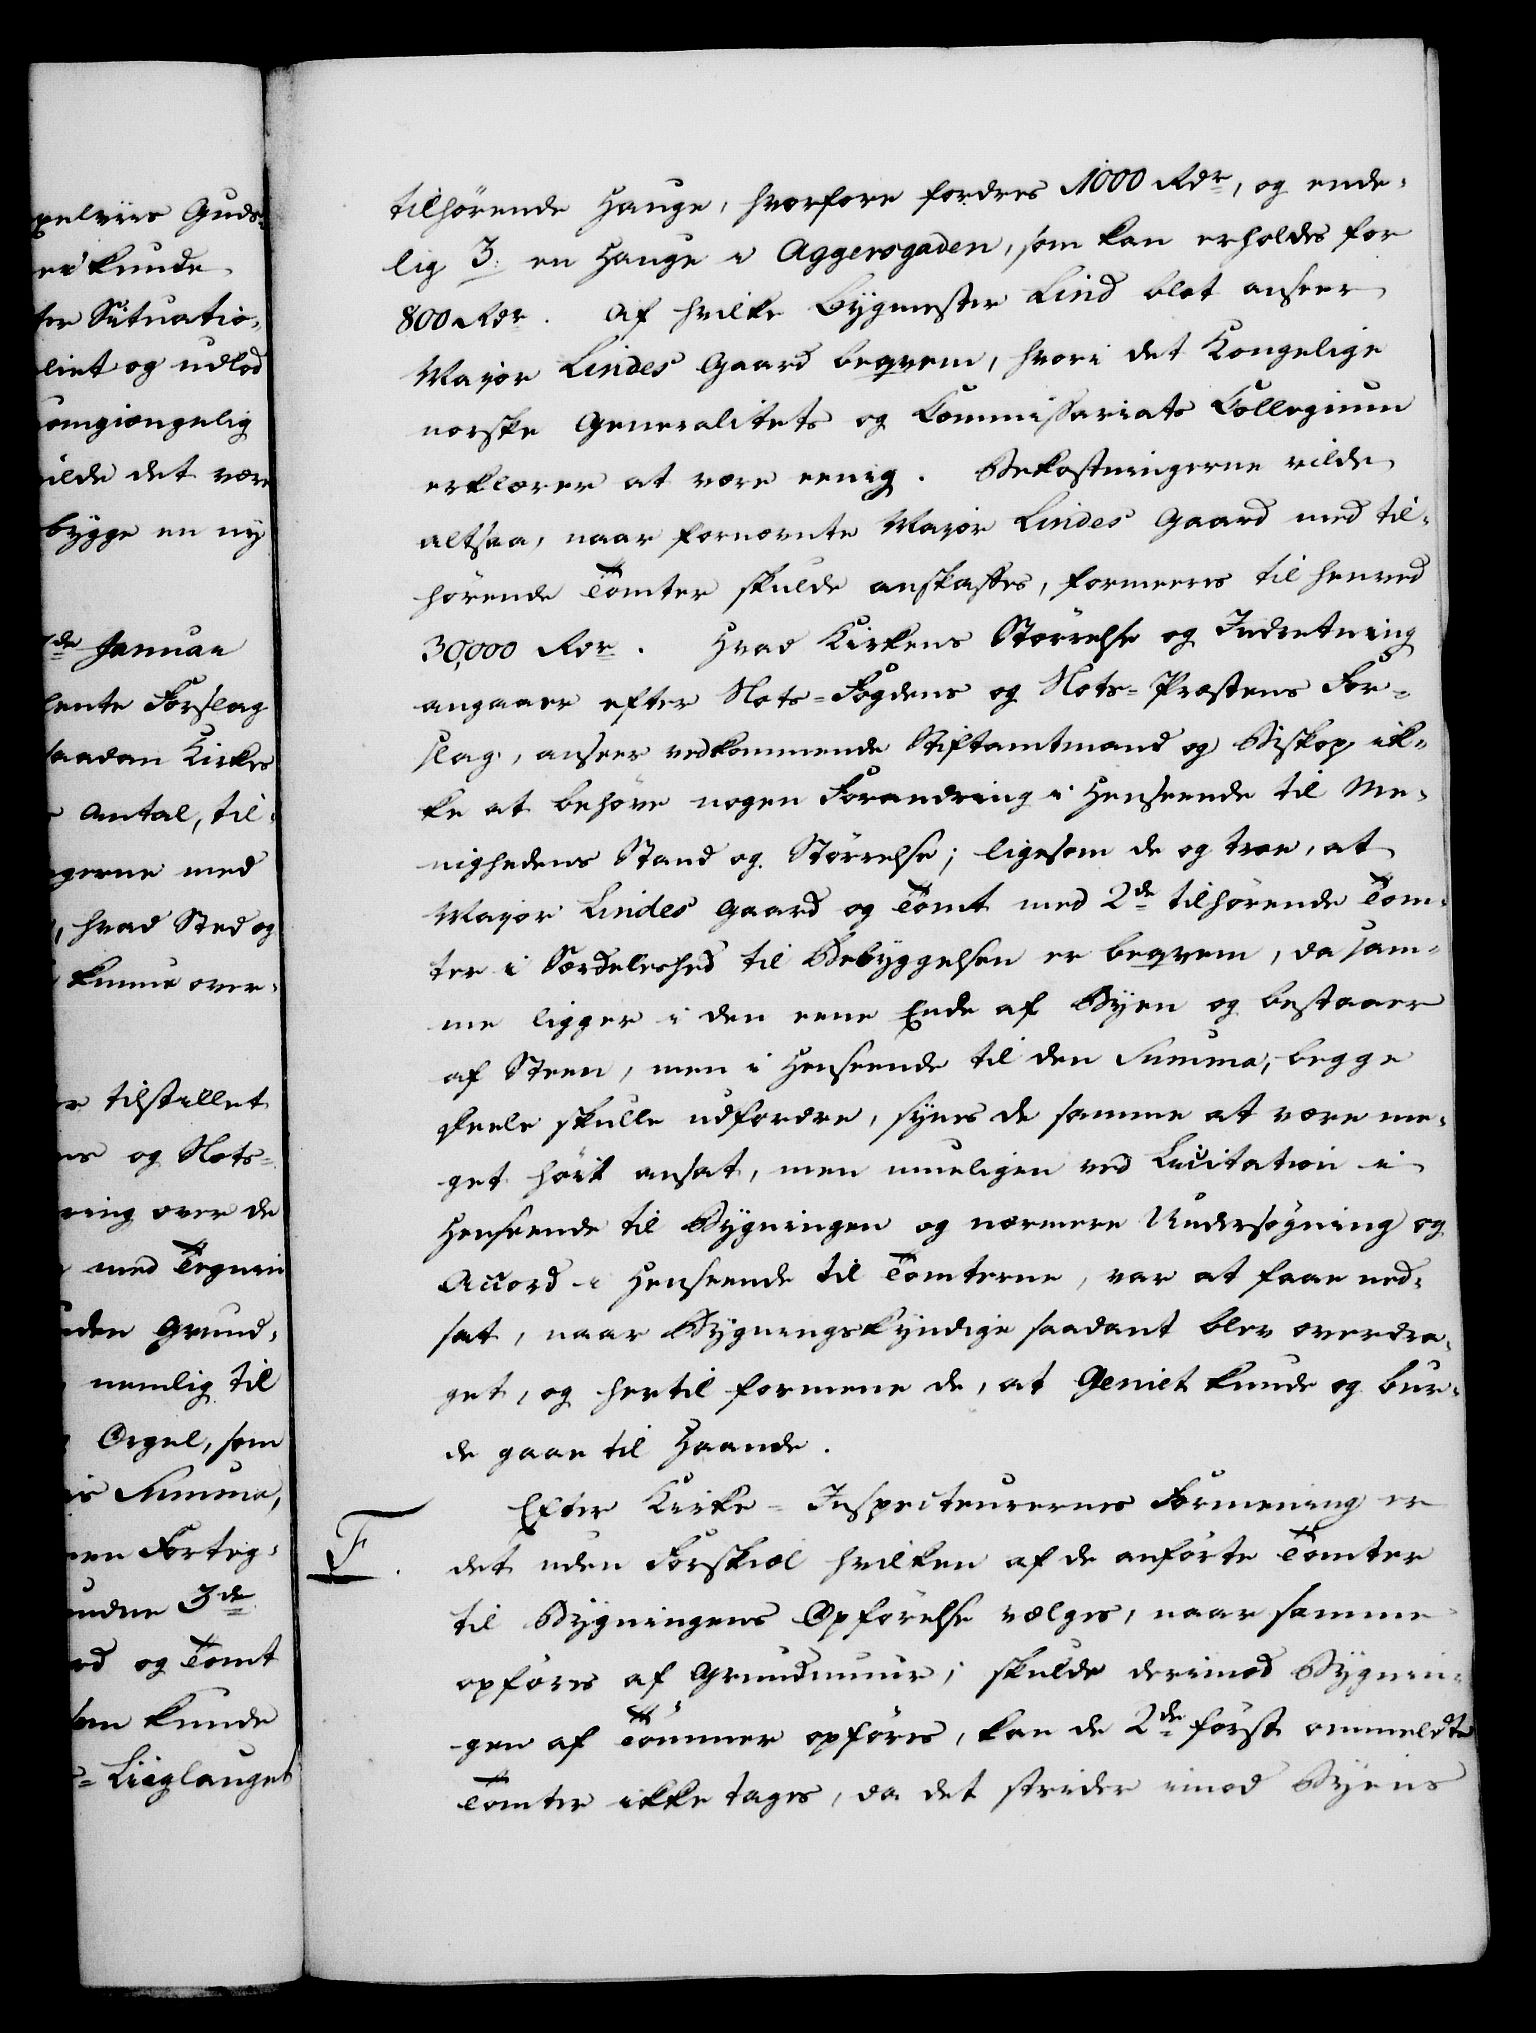 pelviis Guds-
kunde
ter Situatio-
liet og udlod
omgiængelig
ilde det være
bygge en ny
de Januar
ente Forslag
saadan Kirkes
Antal, til-
gerne med
, hvad Sted og
kunne over-
er tilstillet
ns og Slots-
ring over de
med Tegnin
den Grund-
nemlig til
Orgel, som
is Summa,
en Forteg-
udne 3de
rd og Tomt
som kunde
= Liiglauget
tilhörende Hauge, hvorfore fordres 1000 Rdr, og ende-
lig 3: en Hauge i Aggersgaden, som kan erholdes for
800 Rdr. Af hvilke Bygmester Lind blot anseer
Major Lindes Gaard beqvem, hvori det Kongelige
norske Generalitets og Commissariats Collegium
erklærer at være eenig. Bekostningerne vilde
altsaa, naar fornævnte Major Lindes Gaard med til-
hörende Tomter skulde anskaffes, formeeres til henved
30,000 Rdr. Hvad Kirkens Störrelse og Indretning
angaaer efter Slots-Fogdens og Slots-Præstens For-
slag, anseer vedkommende Stiftamtmand og Biskop ik-
ke at behöve nogen Forandring i Henseende til Me-
nighedens Stand og Störrelse; ligesom de og troe, at
Major Lindes Gaard og Tomt med 2de tilhörende Tom-
ter i Særdeleshed til Bebyggelsen er beqvem, da sam-
me ligger i den eene Ende af Byen og bestaaer
af Steen, men i Henseende til den Summa, begge
Deele skulle udfordre, synes de samme at være me-
get höit ansat, men mueligen ved Licitation i
Henseende til Bygningen og nærmere Undersögning og
Accord i Henseende til Tomterne, var at faae ned-
sat, naar Bygningskyndige saadant blev overdra-
get, og hertil formene de, at Geniet kunde og bur-
de gaae til Haande.
F. Efter Kirke-Inspecteurernes Formening er
det uden Forskiæl hvilken af de anförte Tomter
til Bygningens Opförelse vælges, naar samme
opföres af Grundmuur; skulde derimod Bygnin-
gen af Tömmer opföres, kan de 2de först ommeldte
Tomter ikke tages, da det strider imod Byens